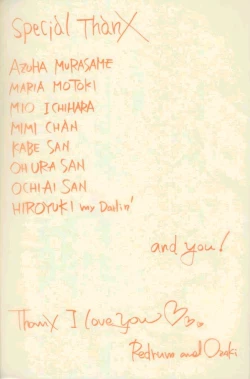 Special ThanX
AZUHA MURASAME
MARIA MOTOKI
MIO ICHIHARA
MIMI CHAN
KABE SAN
OHURA SAN
OCHIAI SAN
HIROYUKI my Darlin'
and you!
ThanX I love you
Redrum and Ozaki